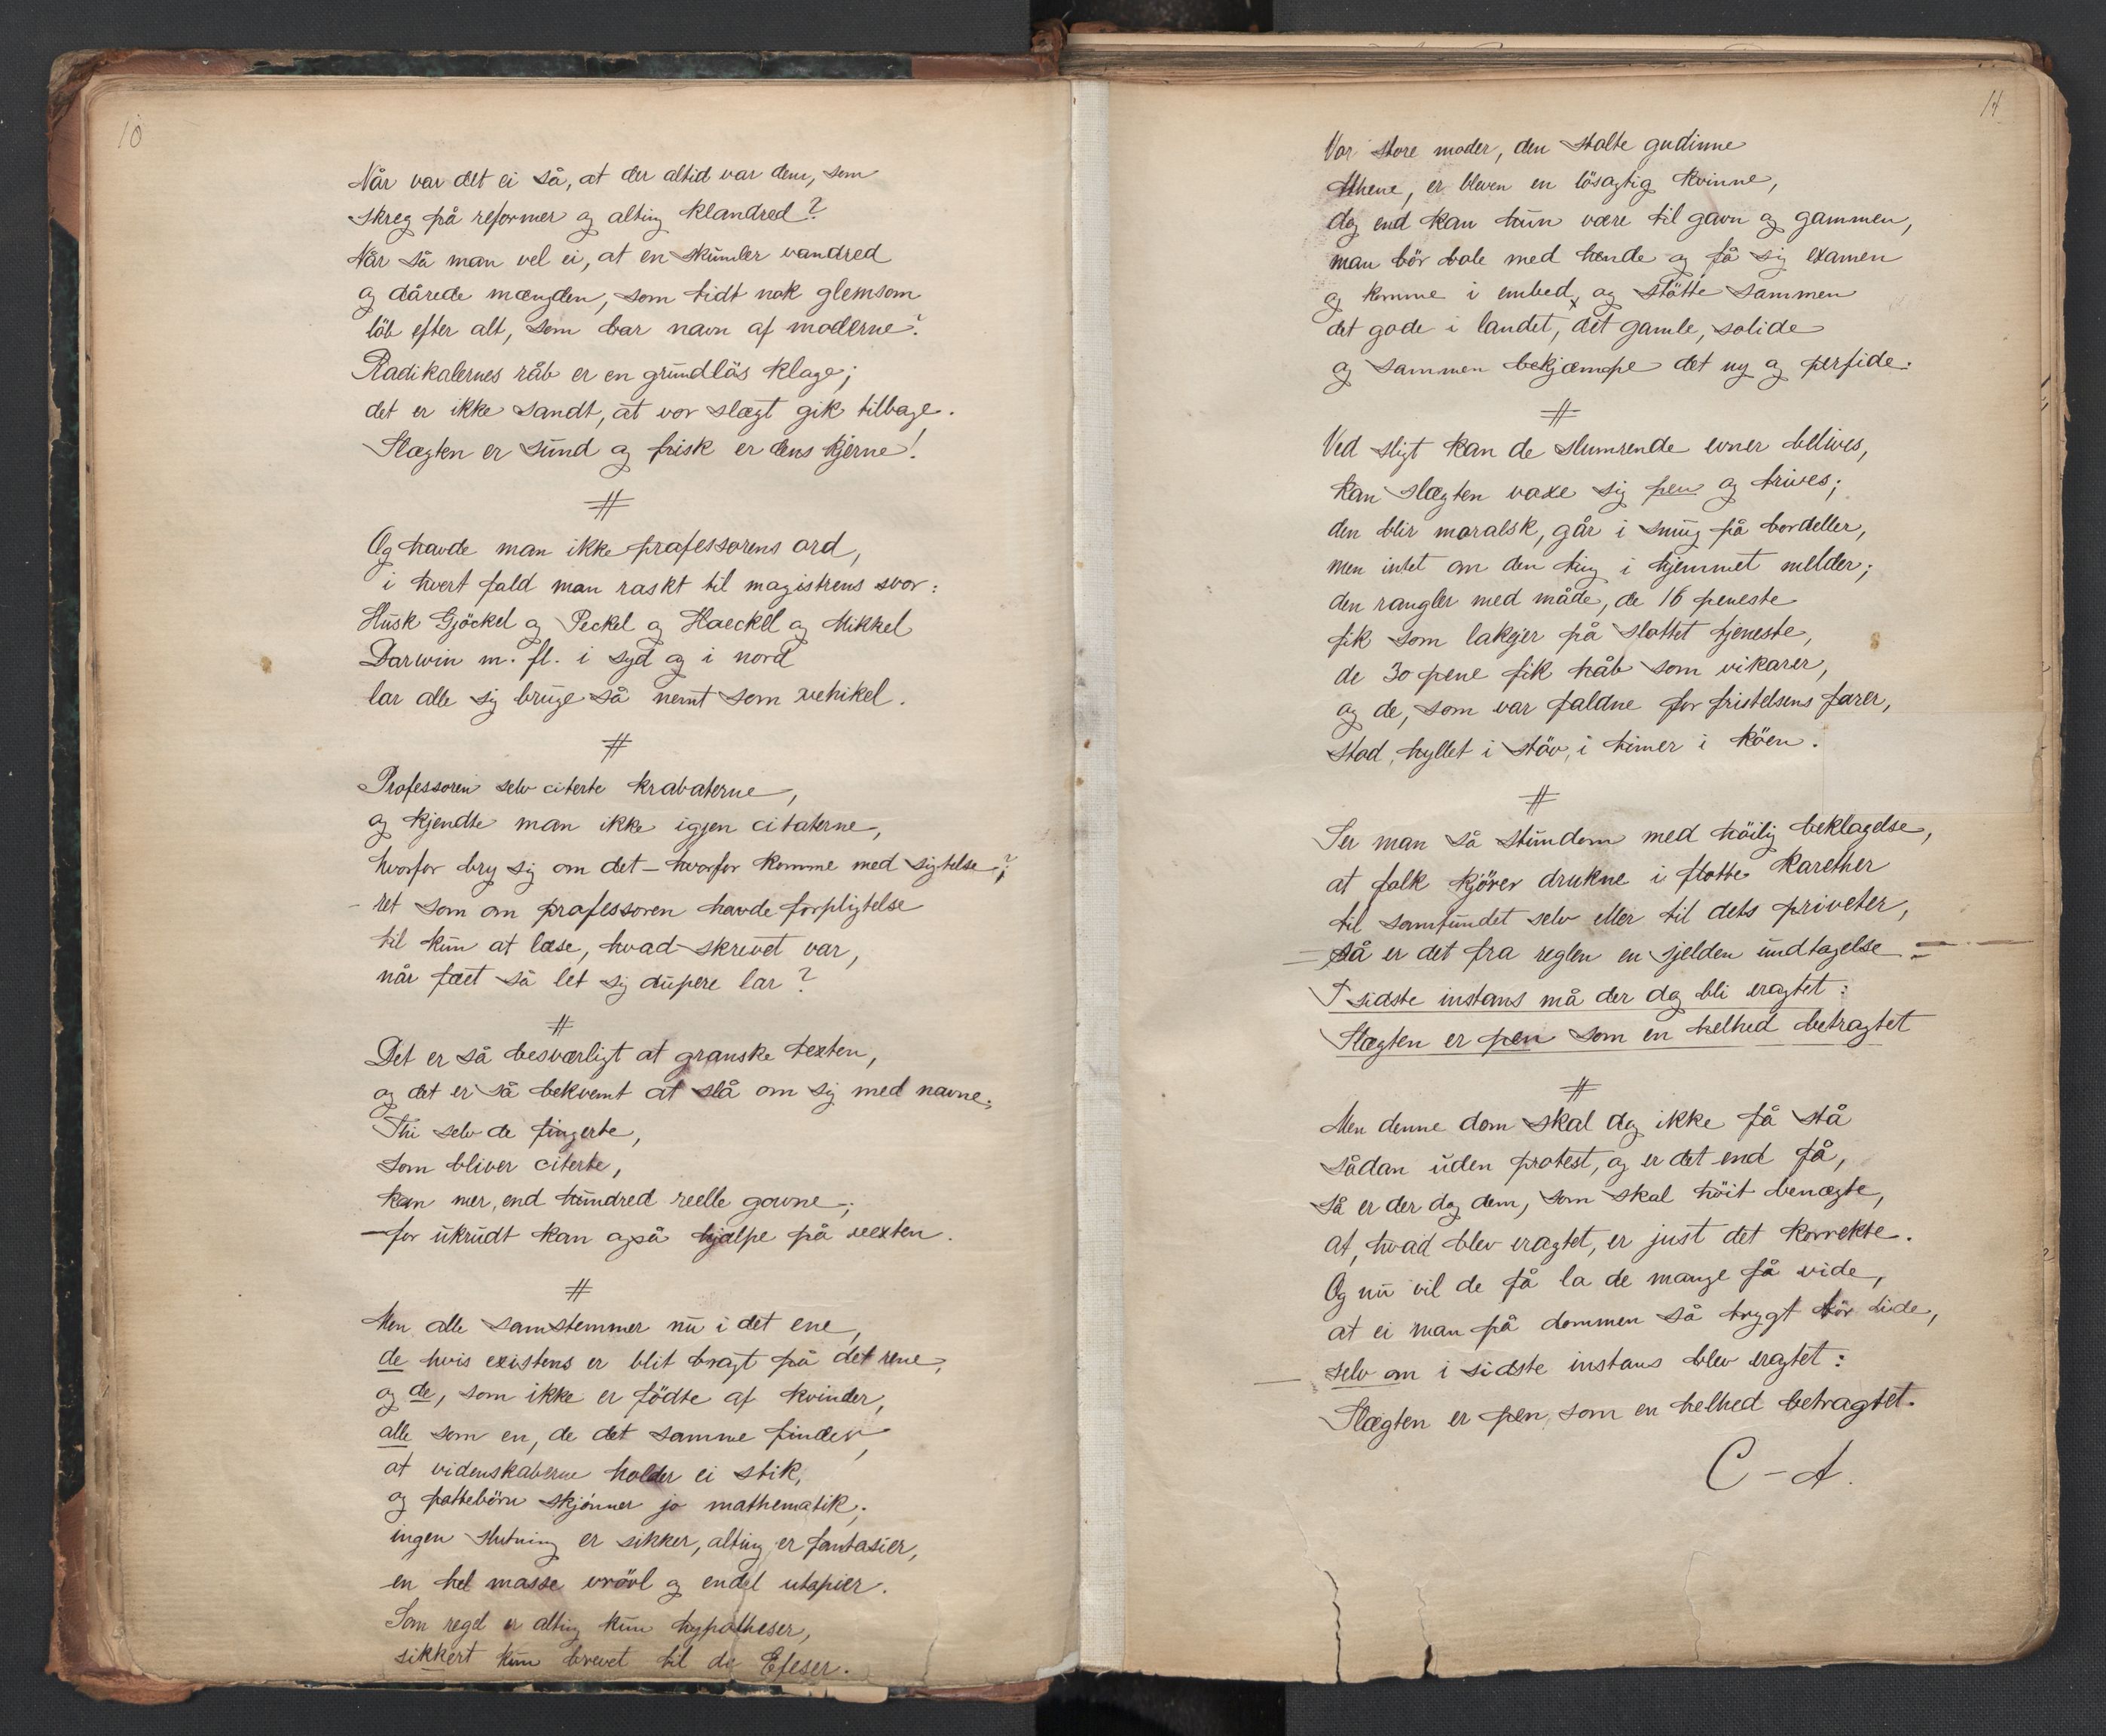 10
Når var det ei så, at der altid var dem, som
skreg på reformer og alting klandred?
Når så man vel ei, at en skumler vandred
og dårede mængden, som tidt nok glemsom
löb efter alt, som bar navn af moderne?
Radikalernes råb er en grundlös klage;
det er ikke sandt, at vor slægt gik tilbage.
Slægten er sund og frisk er dens kjerne!
#
Og havde man ikke professorens ord,
i hvert fald man raskt til magistrens svor:
Husk Gjöckel og Peckel og Haeckel og Mikkel
Darwin m. fl. i syd og i nord
lar alle sig bruge så nemt som vehikel.
#
Professoren selv citerte krabaterne,
og kjendte man ikke igjen citaterne,
hvorfor bry sig om det – hvorfor komme med sigtelse?
– ret som om professoren havde forpligtelse
til kun at læse, hvad skrevet var,
når fæet så let sig dupere lar?
#
Det er så besværligt at granske texten,
og det er så bekvemt at slå om sig med navne;
Thi selv de fingerte,
som bliver citerte,
kan mer, end hundred reelle gavne;
– for ukrudt kan også hjælpe på vexten.
#
Men alle samstemmer nu i det ene,
de hvis existens er blit bragt på det rene,
og de, som ikke er födte af kvinder,
alle som en, de det samme finder,
at videnskaberne holder ei stik,
og pattebörn skjönner jo mathematik;
ingen slutning er sikker, alting er fantasier,
en hel masse vrövl og endel utopier.
Som regel er alting kun hypotheser,
sikkert kun brevet til de Efeser.
11
Vor store moder, den stolte gudinne
Athene, er bleven en lösagtig kvinne,
dog end kan hun være til gavn og gammen,
man bör bole med hende og få sig examen
og komme i embed, og stötte sammen
det gode i landet, det gamle, solide
og sammen bekjæmpe det ny og perfide.
#
Ved sligt kan de slumrende evner belives,
kan slægten vaxe sig pen og trives;
den blir moralsk, går i smug på bordeller,
men intet om den ting i hjemmet melder;
den rangler med måde, de 16 peneste
fik som lakejer på slottet tjeneste,
de 30 pene fik håb som vikarer,
og de, som var faldne for fristelsens farer,
stod, hyllet i stöv, i timer i köen.
#
Ser man så stundom med höilig beklagelse,
at folk kjörer drukne i flotte karether
til samfundet selv eller til dets priveter,
– så er det fra reglen en sjelden undtagelse –
I sidste instans må der dog bli eragtet:
Slægten er pen som en helhed betragtet
#
Men denne dom skal dog ikke få stå
sådan uden protest, og er det end få,
så er der dog dem, som skal höit benægte,
at, hvad blev eragtet, er just det korrekte.
Og nu vil de få la de mange få vide,
at ei man på dommen så trygt bör lide,
– selv om i sidste instans blev eragtet:
Slægten er pen, som en helhed betragtet.
C – A.